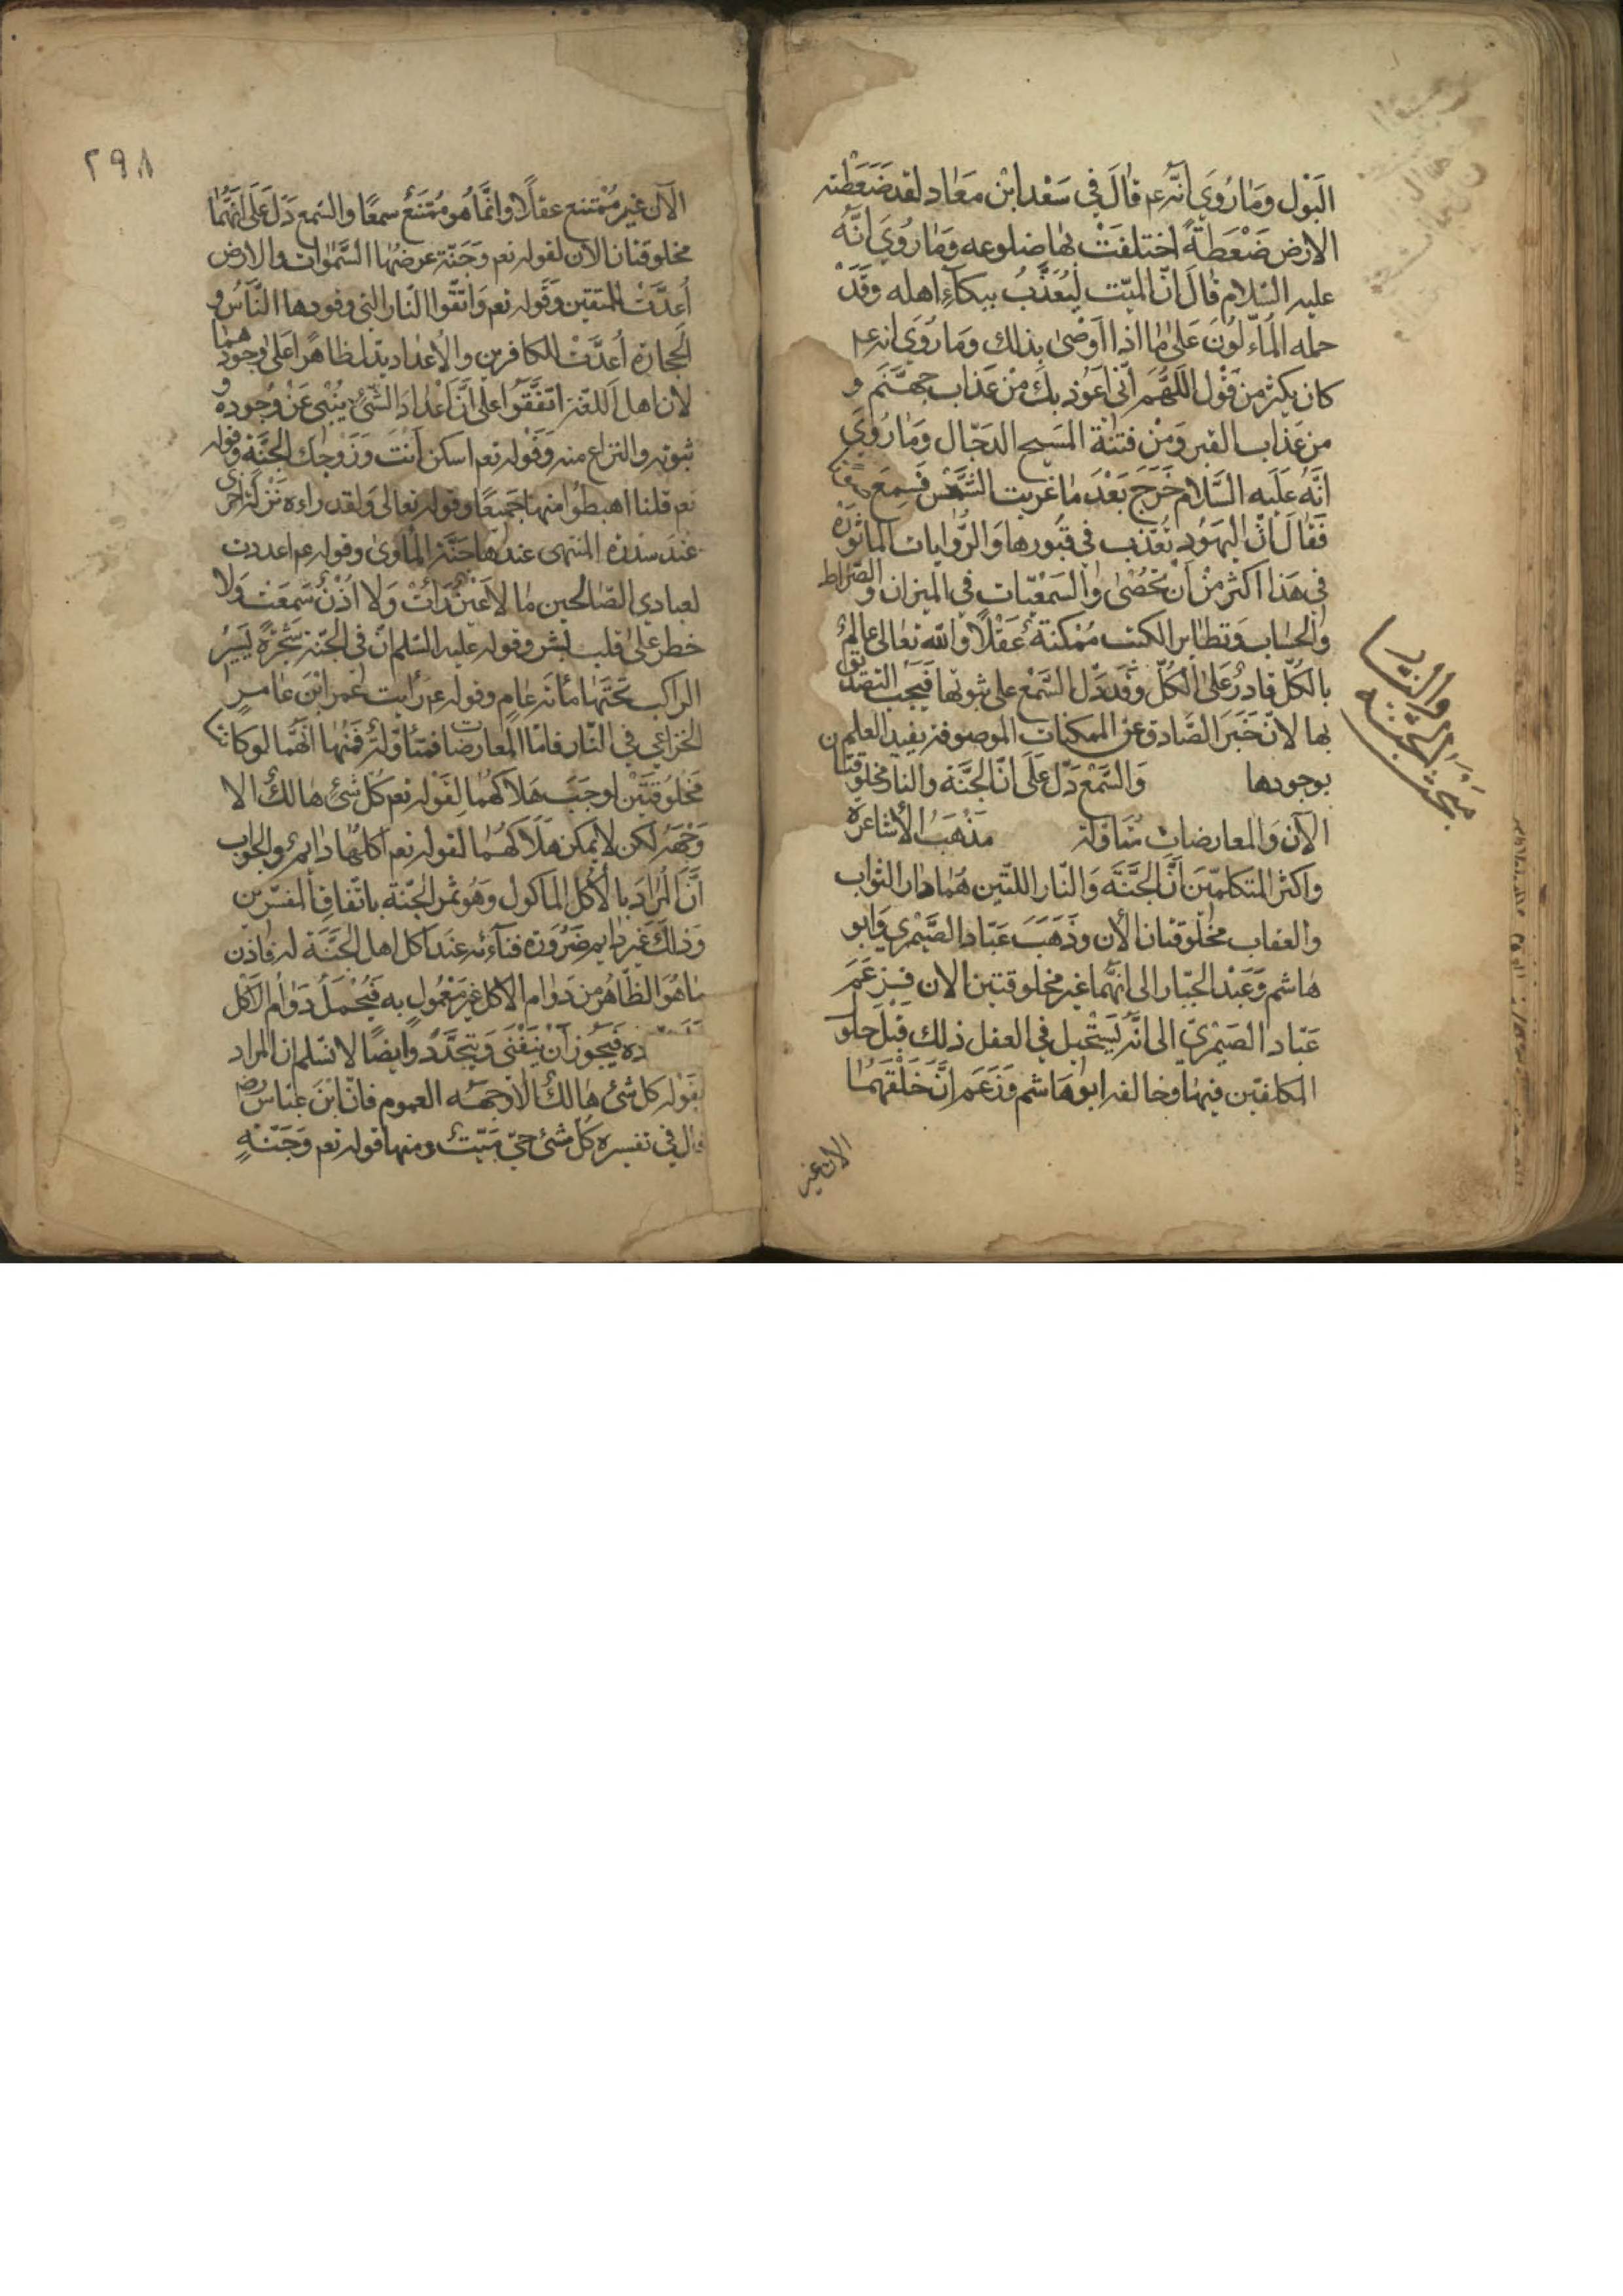 البول وما رُوي انّه عم قال في سعد ابن معاد لقد ضغطته
الارض ضغطةً اختلفت بها ضلوعه وما روي انّه
عليه السّلام قال انّ الميّت ليُعذَّبُ ببكاءِ اهله وقد
حمله المأوّلون على ما اذا اوصى بذلك وما روي انه عم
كان يكثر من قول اللّهمّ انّي اعوذ بك من عذاب جهنّم و
من عذاب القبر ومن فتنة المسيح الدجّال وما رُوي
انّه عليه السّلام خرج بعد ما غربت الشّمس فسمع
فقال انّ اليهود تعذب في قبورها والرّوايات الماثورة
في هذا اكثر من ان تحصى والسّمعيّات في الميزان والصّراط
والحساب وتطاير الكتب ممكنة عقلًا والله تعالى عالمٌ
بالكلّ قادرٌ على الكلّ وقد دلّ السّمع على ثبوتها فيجب التصديق
بها لانّ خبر الصّادق عن الممكنات الموصوفة يفيد العلم
بوجودها والسّمع دلّ على انّ الجنّة والنار مخلوقتان
الآن والمعارضات متاولة مذهبُ الأشاعرة
واكثر المتكلمين انّ الجنّة والنّار اللتين هما دار الثواب
والعقاب مخلوقتان الأن وذهب عبّاد الصّيمري وابو
هاشم وعبد الجبّار الى انّهما غير مخلوقتين الان فزعم
عبّاد الصيمريّ الى انّه يستحيل في العقل ذلك قبل حلو
المكلفين فيها وخالفه ابو هاشم وزعم انّ خلقهما
الان غير
مبحث الجنّة والنار
٢٩٨
الآن غير ممتنع عقلًا وانّما هو ممتنع سمعًا والسّمع دلّ على انّهما
مخلوقتان الان لقوله تعم وجنّة عرضها السّموات والارض
أعدّت للمتقين وقوله تعم واتّقوا النّار التي وقودها النّاسُ و
الحجارة أعدّت للكافرين والاعداد يدل ظاهرًا على وجودهما
لان اهل اللّغة اتّفقوا على أنّ اعداد الشّيء ينبي عن وجوده و
ثبوته والنزاع منه وقوله تعم اسكن انت وزوجك الجنّة وقوله
تعم قلنا اهبطوا منها جميعًا وقوله تعالى ولقد راءه نزلة اخرى
عند سدرة المنتهى عندها جنّة المأوى وقوله عم اعددت
لعبادي الصّالحين ما لا عينٌ رأت ولا اذنٌ سمعت ولا
خطر على قلب بشر وقوله عليه السّلم انّ في الجنّة شجرةً يسيرُ
الراكب تحتها مأئة عامٍ وقوله عم رأيت عمر ابن عامر
الخزاعي في النّار فامّا المعارضات فمتأوّلة فمنها انّهما لو كانتا
مخلوقتين لوجب هلاكهما لقوله تعم كل شيءٍ هالكٌ الا
وجهه لكن لا يمكن هلاكهما لقوله تعم اكلها دايم والجواب
أنّ المراد بالأكل الماكول وهو ثمر الجنّة باتّفاق المفسّرين
وذلك غير دايم ضرورة فناءه عند اكل اهل الجنّة له فاذن
ما هو الظّاهر من دوام الاكل غير معمولٍ به فيُحمل دوام الاكل
ده فيجوز ان يفنى ويتجدّد وايضًا لا نسلم ان المراد
بقوله كل شيء هالكٌ الا وجهه العموم فانّ ابن عباس رض
قال في تفسيره كل شيء حيّ ميّت ومنها قوله تعم وجنّةٍ